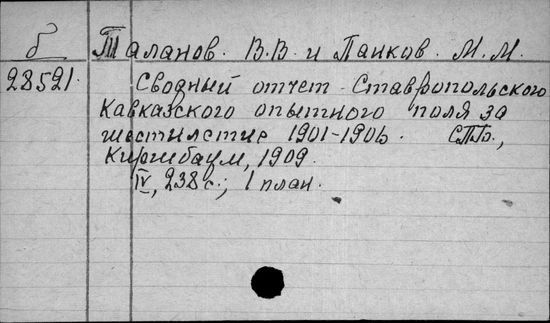 б Таланов. В.В. и Панков. М.М.
28521. Сводный отчет Ставропольского
Кавказского опытного поля за
шестилетие 1901-1906. СПб.,
Киршбаум, 1909.
IV, 238 с.; 1 план.